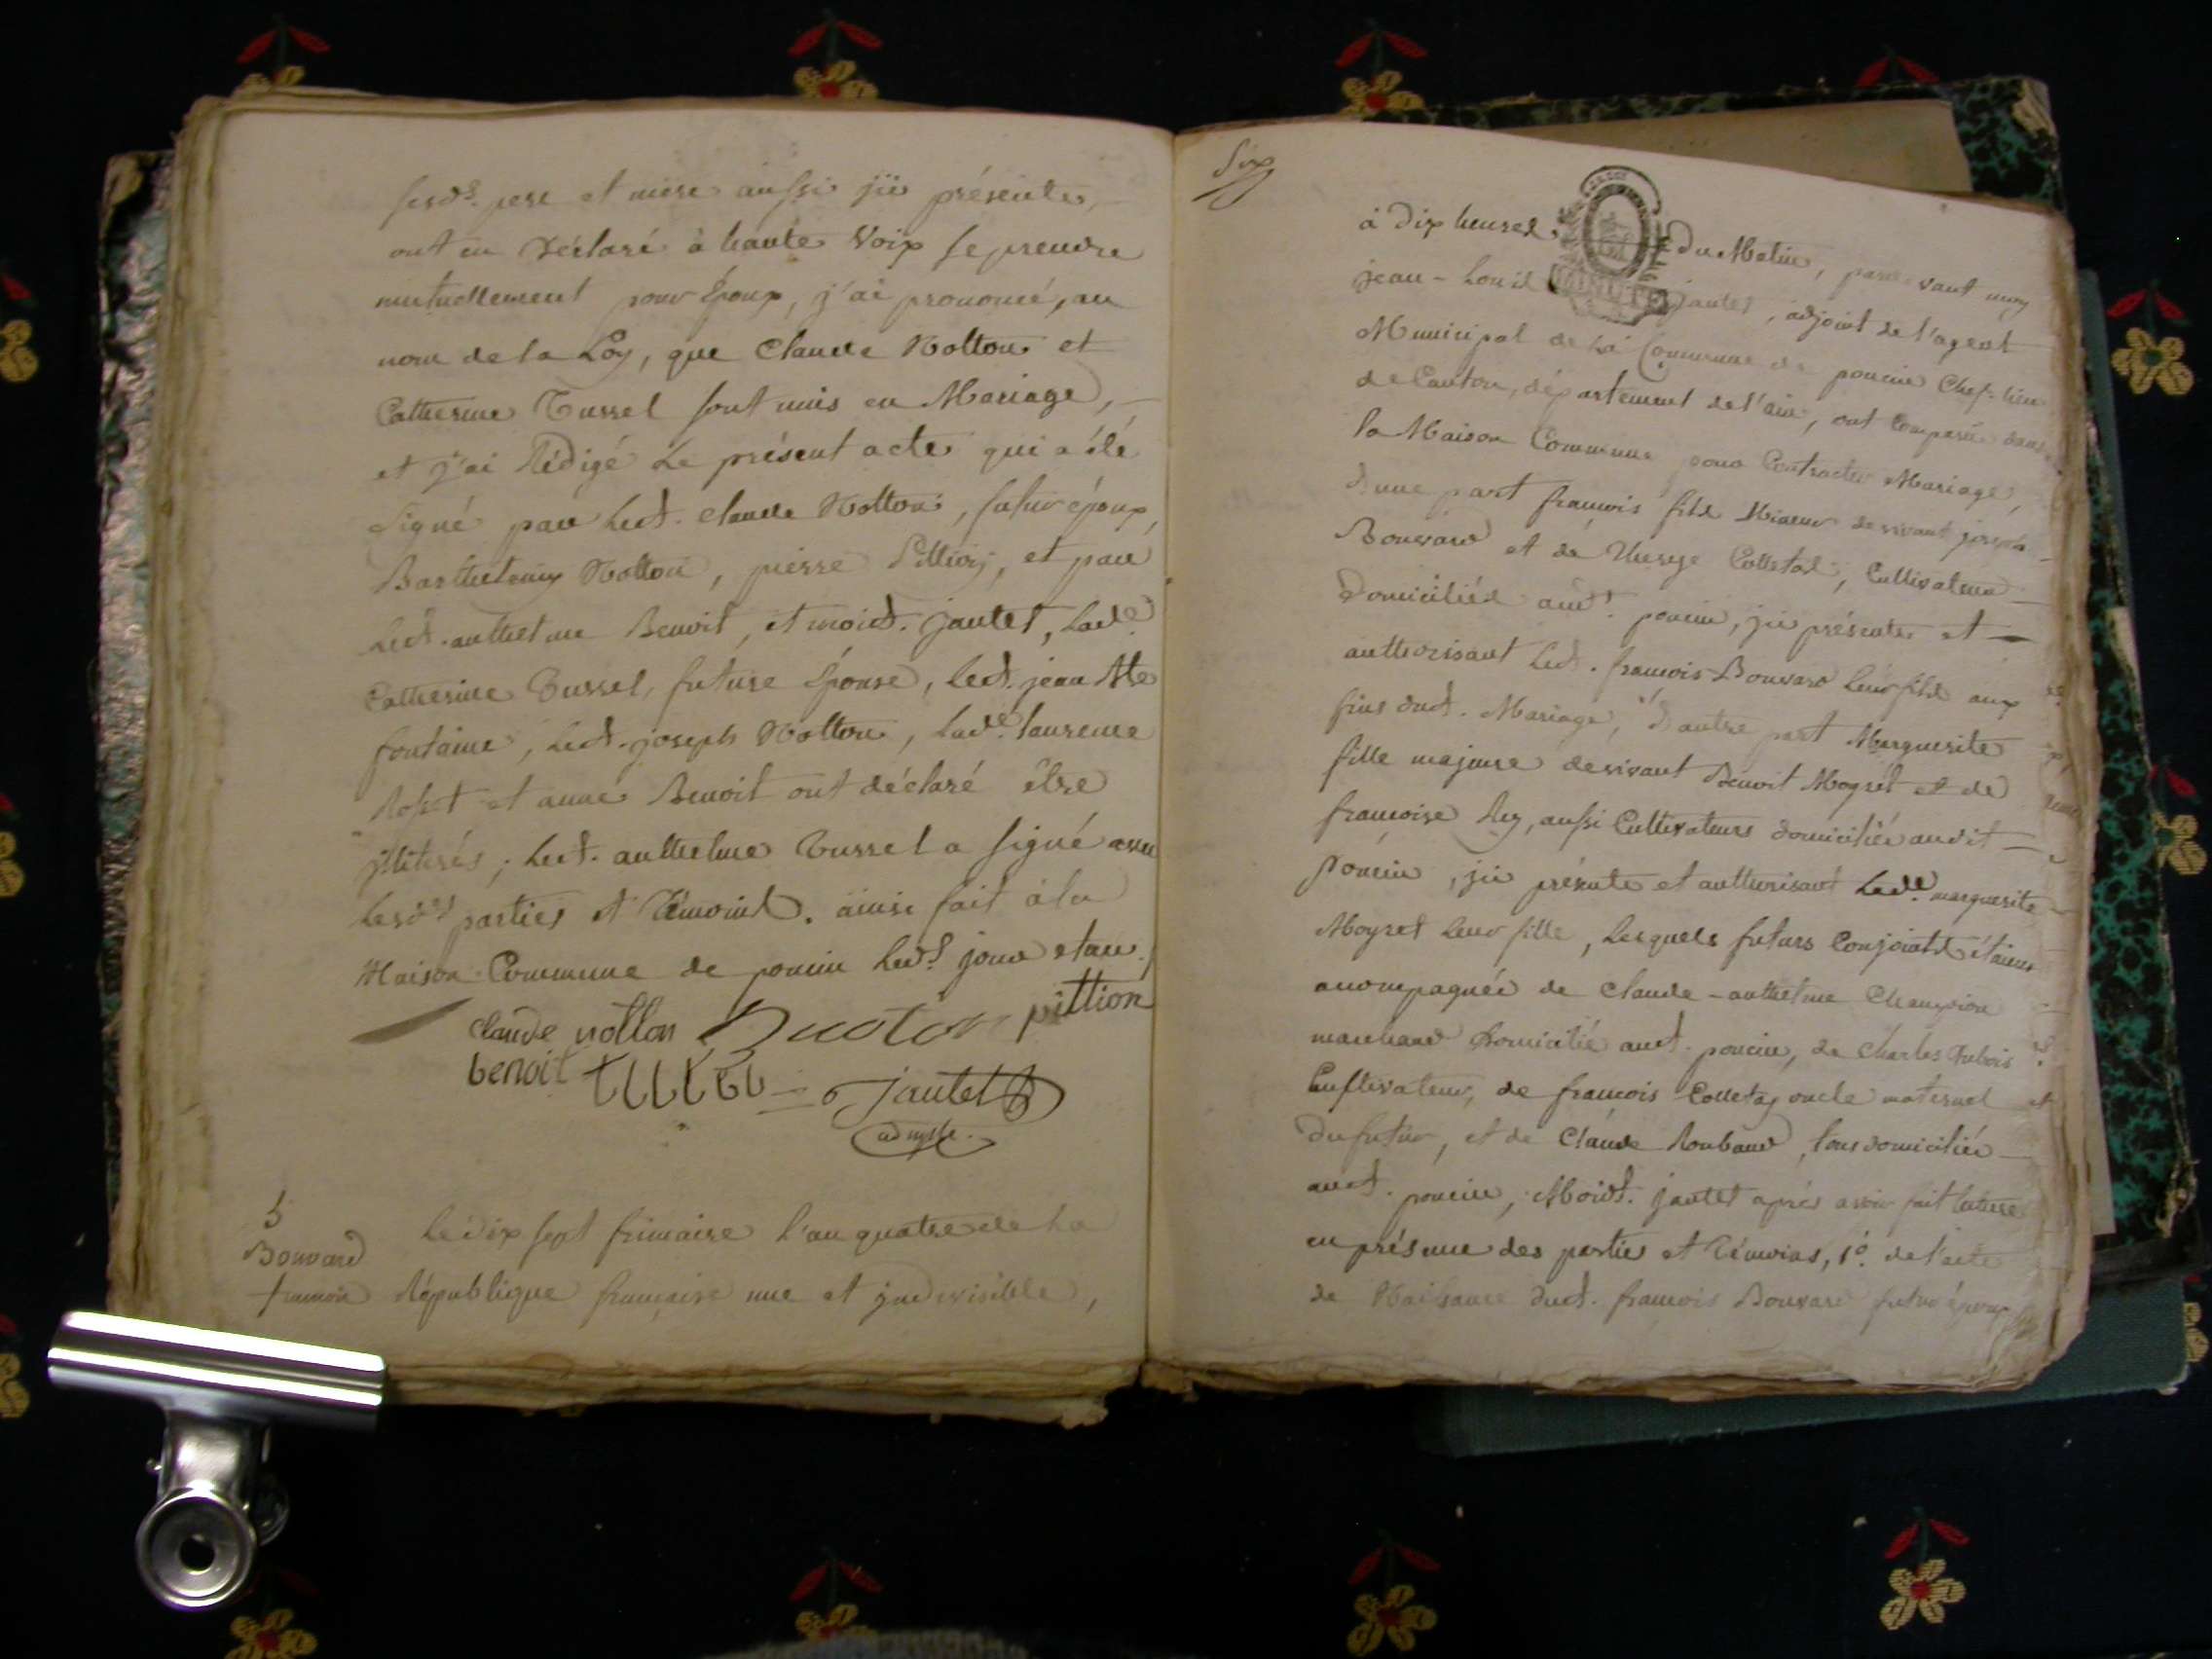 sesds. pere et mere aussi ici présents,
ont eu déclaré à haute voix se prendre
mutuellement pour époux, j'ai prononcé, au
nom de la Loy, que Claude Notton et
Catherine Tussel sont unis en Mariage,
et j'ai rédigé le présent acte qui a été
signé par led. claude Notton, futur époux,
Barthelemy Notton, pierre Pittion, et par
led. anthelme Benoit, et moid. jantet, lade.
Catherine Tussel, future épouse, led. jean
fontaine, led. joseph Notton, lade. laurence
et anne Benoit ont déclaré être
jlliterés, led. anthelme Tussel a signé avec
lesdes parties et témoins. ainsi fait à la
Maison Commune de poncin leds. jour et an.
claude notton pittion
benoit
jantet
5
Bouvard
francois
Le dix sept frimaire l'an quatre de la
République française une et jndivisible,
Six
à dix heures du Matin, pardevant moy
jean-Louis jantet, adjoint de l'agent
Municipal de la Commune de poncin Chef-lieu
de Canton, département de l'ain, ont comparu dans
la Maison Commune pour Contracter Mariage,
d'une part francois fils Mineur de vivant joseph
Bouvard et de Cultivateurs
domiciliés audt. poncin, jci présents et
authorisant led. francois Bouvard leur fils aux
fins dud. Mariage, d'autre part Marguerite
fille majeure de vivant Benoit Moyret et de
francoise Rey, aussi Cultivateurs domiciliés audit
Poncin, jci présents et authorisant lade. marguerite
Moyret leur fille, lesquels futurs Conjoints étaient
accompagnés de Claude-anthelme Champion
marchand domicilié aud. poncin, de Charles Dubois
Cultivateur, de francois Colletaz oncle maternel
du futur, et de Claude Roubaud, tous domiciliés
aud. poncin, Moidt. jantet après avoir fait lecture
en présence des parties et témoins, 1o. de l'acte
de Naissance dud. francois Bouvard futur époux